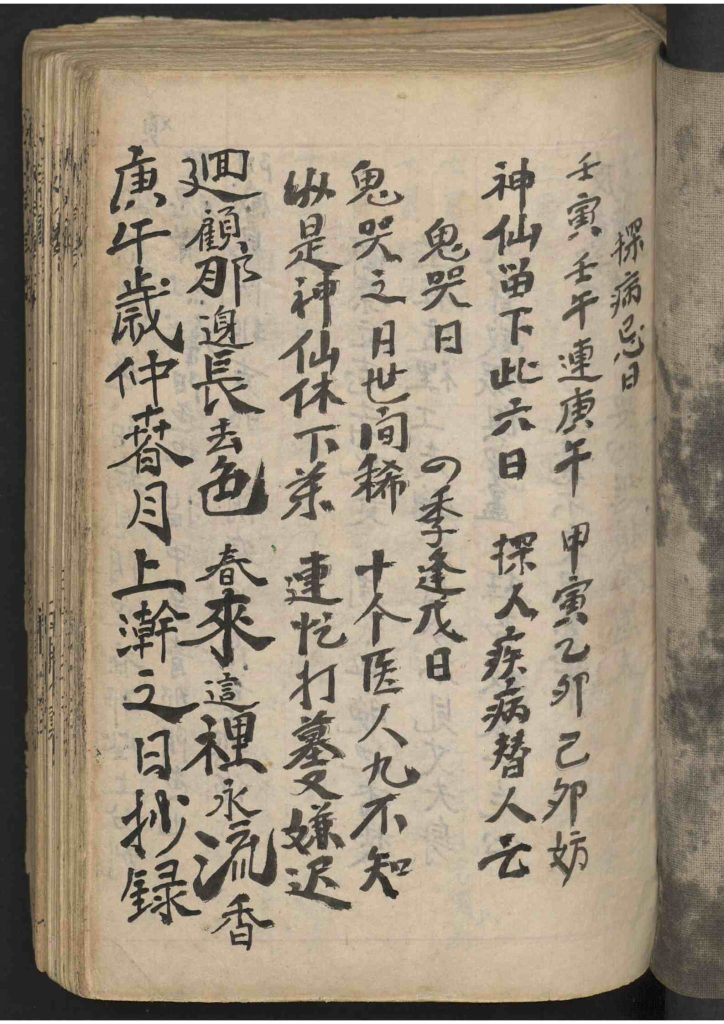 探病忌日
壬寅壬午連庚午 甲寅乙卯己卯妨
神仙留下此六日 探人疾病替人亡
鬼哭日 四季逢戊日
鬼哭之日世间稀 十个医人九不知
纵是神仙休下葯 連忙打墓又嫌迟
廻顧那邊長去色 春來這裡永流香
庚午歳仲春月上澣之日抄録